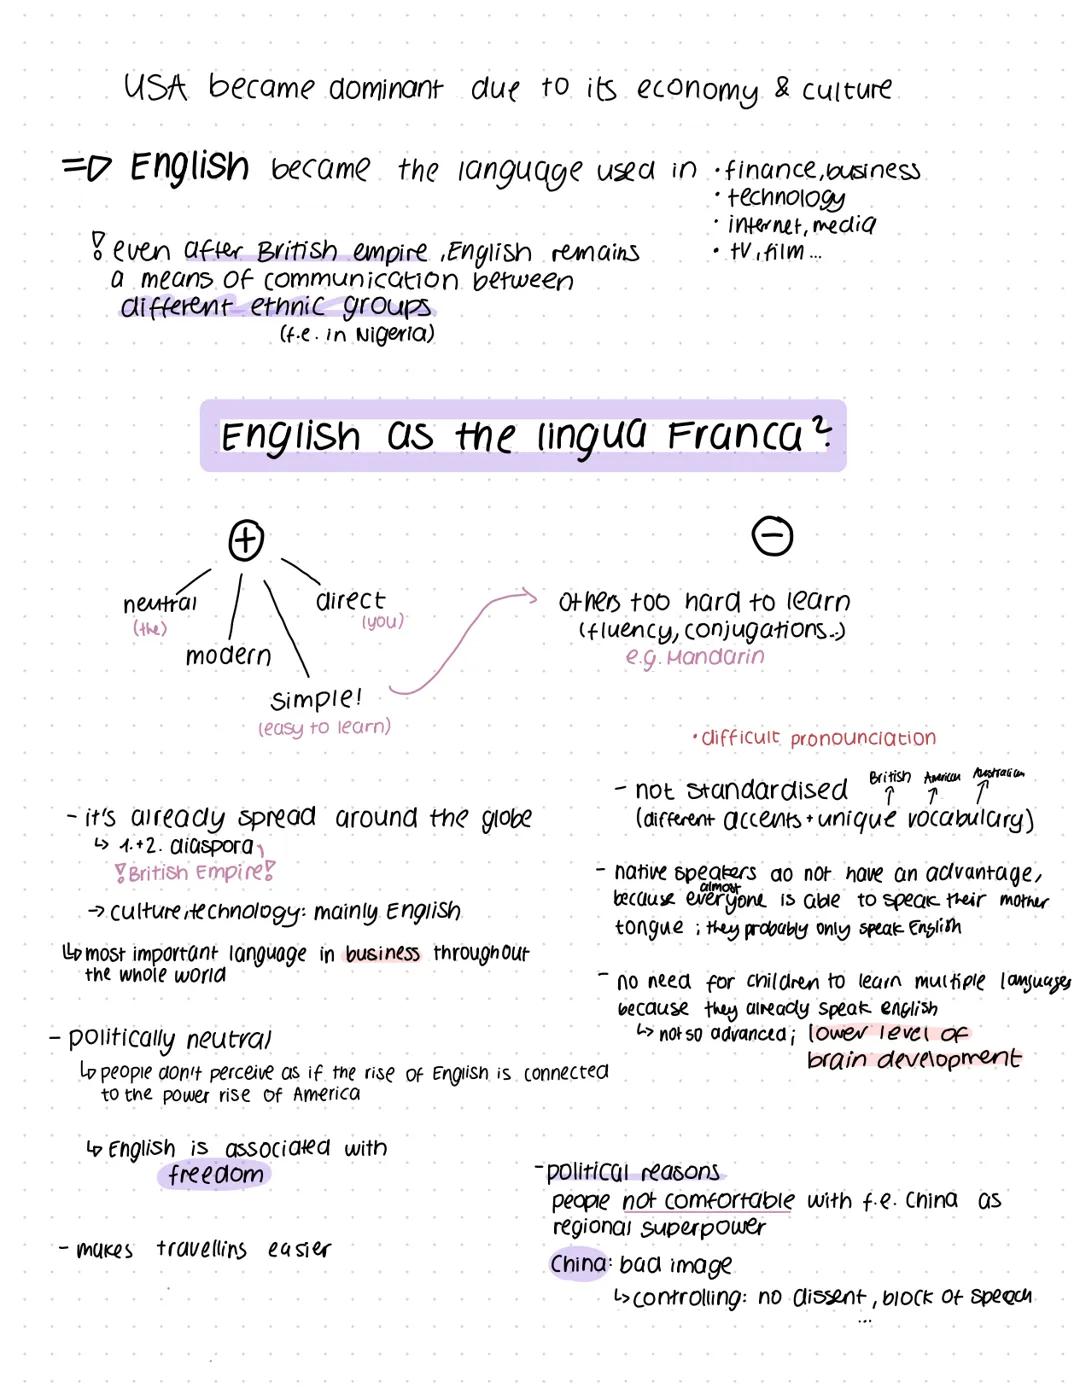 USA became dominant due to its economy & culture
=> English became the language used in
• finance, business
• technology
• internet, media
• tV, film ...
! even after British empire, English remains
a means of communication between
different ethnic groups
(f.e. in Nigeria)
English as the lingua Franca?
+
neutral
(the)
direct
(you)
modern
simple!
(easy to learn)
- it's already spread around the globe
↳ 1.+2. diaspora,
!British Empire!
→ culture, technology: mainly English
↳ most important language in business throughout
the whole world
- politically neutral
↳ people don't perceive as if the rise of English is connected
to the power rise of America
↳ English is associated with
freedom
- makes travellins easier
−
others too hard to learn
(fluency, conjugations..)
e.g. Mandarin
• difficult pronounciation
- not standardised
British American Australian
(different accents + unique vocabulary)
- native speakers do not have an advantage,
because almost everyone is able to speak their mother
tongue ; they probably only speak English
- no need for children to learn multiple languages
because they already speak english
↳ not so advanced; lower level of
brain development
- political reasons
people not comfortable with f.e. China as
regional superpower
China: bad image
↳ controlling: no dissent, block of speech
...